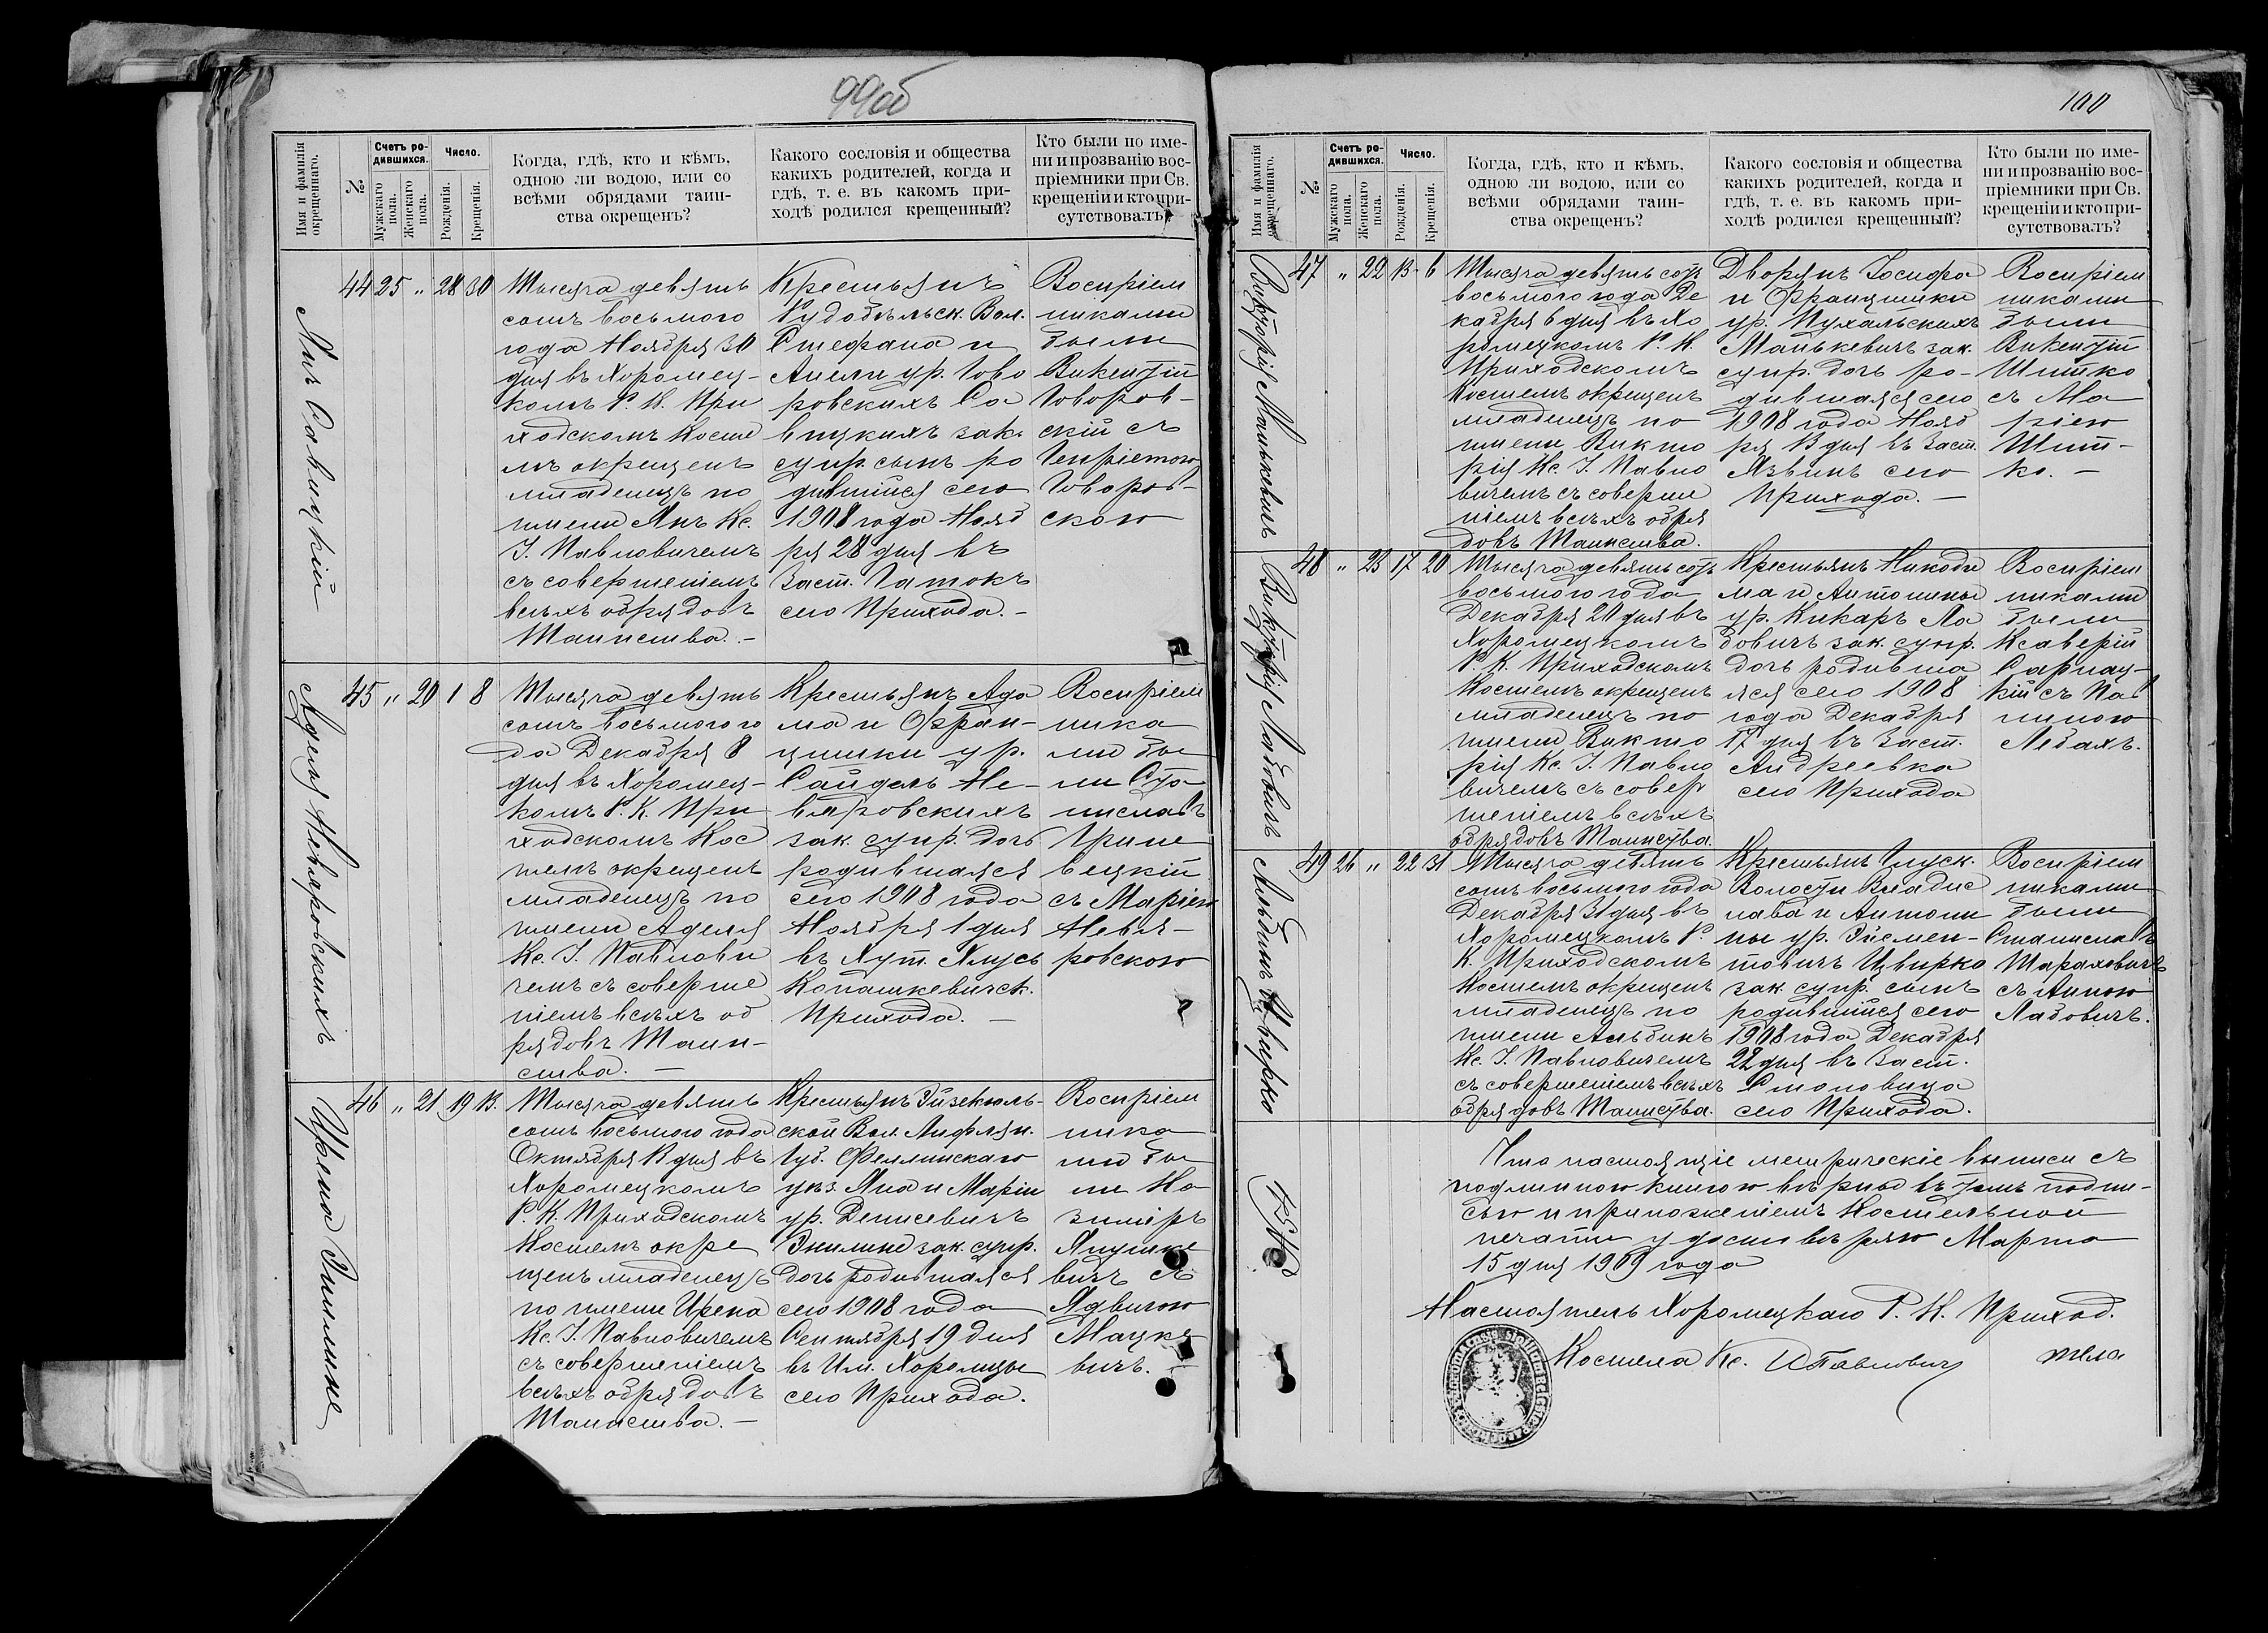 99об
Имя и фамилія окрещеннаго.
№
Счетъ родившихся.
Мужскаго пола.
Женскаго пола.
Число.
Рожденія.
Крещенія.
Когда, гдѣ, кто и кѣмъ,
одною ли водою, или со
всѣми обрядами таин-
ства окрещенъ?
Какого сословія и общества
какихъ родителей, когда и
гдѣ, т. е. въ какомъ при-
ходѣ родился крещенный?
Кто были по име-
ни и прозванію вос-
пріемники при Св.
крещеніи и кто при-
сутствовалъ?
Янъ Савицкій
44 25 „ 28 30
Тысяча девять
сотъ восьмого
года Ноября 30
дня въ Хоромец-
комъ Р. К. При
ходскомъ Косте
лѣ окрещенъ
младенецъ по
имени Янъ Кс.
I. Павловичемъ
съ совершеніемъ
всѣхъ обрядовъ
Таинства.-
Крестьянъ
Рудобѣльск. Вол.
Стефана и
Анели ур. Гово
ровскихъ Са
вицкихъ зак.
супр. сынъ ро
дившійся сего
1908 года Нояб
ря 28 дня въ
Заст. Гатокъ
сего Прихода.-
Воспріем
никами
были
Викентій
Говоров-
скій съ
Генріетою
Говоров-
скою
Аделя Невяровскихъ
45 „ 20 1 8
Тысяча девять
сотъ восьмого го
да Декабря 8
дня въ Хоромец-
комъ Р. К. При
ходскомъ Кос
телѣ окрещенъ
младенецъ по
имени Аделя
Кс. I. Павлови
чемъ съ соверше
ніемъ всѣхъ об
рядовъ Таин-
ства. —
Крестьянъ Ада
ма и Фран-
цишки ур.
Сайдель Не-
вяровскихъ
зак. супр. дочь
родившаяся
сего 1908 года
Ноября 1 дня
въ Хут. Хлусъ
Копашкевичск.
Прихода. —
Воспріем
ника
ми бы
ли Ста
ниславъ
Грине
вецкій
съ Маріею
Невя-
ровскою
Ирена
46 „ 21 19 13.
Тысяча девять
сотъ восьмого года
Октября 13 дня въ
Хоромецкомъ
Р. К. Приходскомъ
Костелѣ окре
щенъ младенецъ
по имени Ирена
Кс. I. Павловичемъ
съ совершеніемъ
всѣхъ обрядовъ
Таинства. —
Крестьянъ
ской Вол. Лифлян.
Губ. Феллинскаго
уѣз. Яна и Маріи
ур. Денисевичъ
зак. супр.
дочь родившаяся
сего 1908 года
Сентября 19 дня
въ Им. Хоромцы
сего Прихода.
Воспріем
ника
ми бы
ли Ка
зиміръ
Янушке
вичъ съ
Ядвигою
Мацке
вичъ. —
100
Имя и фамилія окрещеннаго.
№
Счетъ родившихся.
Мужскаго пола.
Женскаго пола.
Число.
Рожденія.
Крещенія.
Когда, гдѣ, кто и кѣмъ,
одною ли водою, или со
всѣми обрядами таин-
ства окрещенъ?
Какого сословія и общества
какихъ родителей, когда и
гдѣ, т. е. въ какомъ при-
ходѣ родился крещенный?
Кто были по име-
ни и прозванію вос-
пріемники при Св.
крещеніи и кто при-
сутствовалъ?
Викторія Манькевичъ
47 „ 22 13 6
Тысяча девять сотъ
восьмого года Де
кабря 6 дня въ Хо
ромецкомъ Р. К.
Приходскомъ
Костелѣ окрещенъ
младенецъ по
имени Викто
рія Кс. I. Павло
вичемъ съ соверше
ніемъ всѣхъ обря
довъ Таинства.
Дворянъ Іосифа
и Францишки
ур. Пухальскихъ
Манькевичъ зак.
супр. дочь ро-
дившаяся сего
1908 года Нояб
ря 13 дня въ Заст.
Язвинъ сего
Прихода. —
Воспріем
никами
были
Викентій
Шитко
съ Ма
ріею
Шит-
ко. —
Викторія Лабовичъ
48 „ 23 17 20
Тысяча девять сотъ
восьмого года
Декабря 20 дня въ
Хоромецкомъ
Р. К. Приходскомъ
Костелѣ окрещенъ
младенецъ по
имени Викто
рія Кс. I. Павло
вичемъ съ совер
шеніемъ всѣхъ
обрядовъ Таинства.
Крестьянъ Никоди
ма и Антонины
ур. Кикаръ Ла
бовичъ зак. супр.
дочь родивша
яся сего 1908
года Декабря
17 дня въ Заст.
Андреевка
сего Прихода
Воспріем
никами
были
Ксаверій
Сарнац-
кій съ Па
линою
Лебахъ.
Альбинъ Цвирко
49 26 „ 22 31
Тысяча девять
сотъ восьмого года
Декабря 31 дня въ
Хоромецкомъ Р.
К. Приходскомъ
Костелѣ окрещенъ
младенецъ по
имени Альбинъ
Кс. I. Павловичемъ
съ совершеніемъ всѣхъ
обрядовъ Таинства.
Крестьянъ Глуск.
Волости Владис
лава и Антони
ны ур. Эйсмен-
товичъ Цвирко
зак. супр. сынъ
родившійся сего
1908 года Декабря
22 дня въ Заст.
Столовица
сего Прихода.
Воспріем
никами
были
Станиславъ
Шараховичъ
съ Анною
Лабовичъ.
Что настоящіе метрическіе выписи съ
подлинною книгою вѣрны въ томъ подпи-
сью и приложеніемъ Костельной
печати удостовѣряю Марта
15 дня 1909 года
Настоятель Хоромецкаго Р. К. Приход.
Костела Кс. И Павловичъ